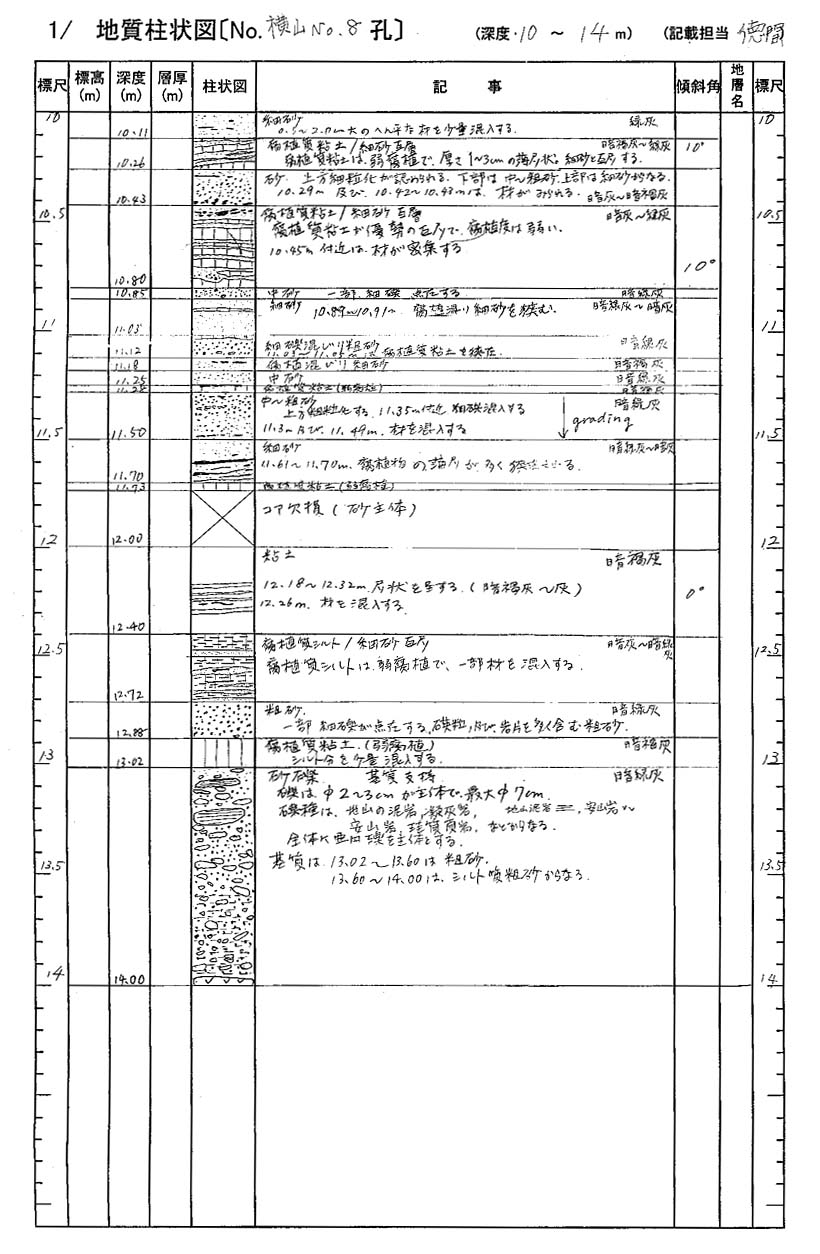 1/ 地質柱状図〔No. 横山No.8 孔〕 (深度・10 ～ 14 m) (記載担当 徳間
標尺 標高(m) 深度(m) 層厚(m) 柱状図 記事 傾斜角 地層名 標尺
10 細砂 緑灰 10
10.11 0.5～2.0cm大のへん平な材を少量混入する.
腐植質粘土/細砂互層 暗褐灰～緑灰 10°
10.26 腐植質粘土は、弱腐植で、厚さ1～3cmの薄層状。細砂と互層する.
砂. 上方細粒化が認められる. 下部は中～粗砂. 上部は細砂からなる.
10.43 10.29m 及び. 10.42～10.43mは、材がみられる. 暗灰～暗褐灰
10.5 腐植質粘土/細砂互層 暗灰～緑灰 10.5
腐植質粘土が優勢の互層で、腐植度は弱い.
10.45m付近は、材が密集する
10°
10.80
10.85 中砂 一部、細礫 点在する 暗緑灰
細砂 10.89～10.91m 腐植混り細砂を挟む. 暗緑灰～暗灰
11 11
11.03
細礫混じり粗砂 暗緑灰
11.12 11.03～11.05mは 腐植質粘土を挟在
11.18 腐植混じり細砂 暗褐灰
11.25 中砂 暗緑灰
11.28 腐植質粘土(弱腐植)
中～粗砂 暗緑灰
上方細粒化する. 11.35m付近 細礫混入する
grading
11.5 11.50 11.3m及び. 11.49m. 材を混入する 11.5
細砂 暗緑灰～暗灰
11.61～11.70m. 腐植物の薄層が多く挟在
11.70
11.73 腐植質粘土(弱腐植)
コア欠損 (砂主体)
12 12.00 12
粘土 暗褐灰
12.18～12.32m. 層状を呈する. (暗褐灰～灰) 0°
12.26m. 材を混入する.
12.40
12.5 腐植質シルト/細砂互層 暗灰～暗緑灰 12.5
腐植質シルトは、弱腐植で、一部材を混入する.
12.72
粗砂. 暗緑灰
12.88 一部 細礫が点在する. 礫粒、及び、岩片を多く含む粗砂.
13 腐植質粘土. (弱腐植) 暗褐灰 13
13.02 シルト分を少量混入する.
砂礫 基質支持 暗緑灰
礫は φ2～3cmが主体で、最大φ7cm.
礫種は、地山の泥岩, 凝灰岩, 地山泥岩 三, 安山岩
安山岩, 珪質頁岩, などからなる.
全体に亜円礫を主体とする.
13.5 基質は. 13.02～13.60は 粗砂. 13.5
13.60～14.00は、シルト質粗砂からなる.
14 14.00 14